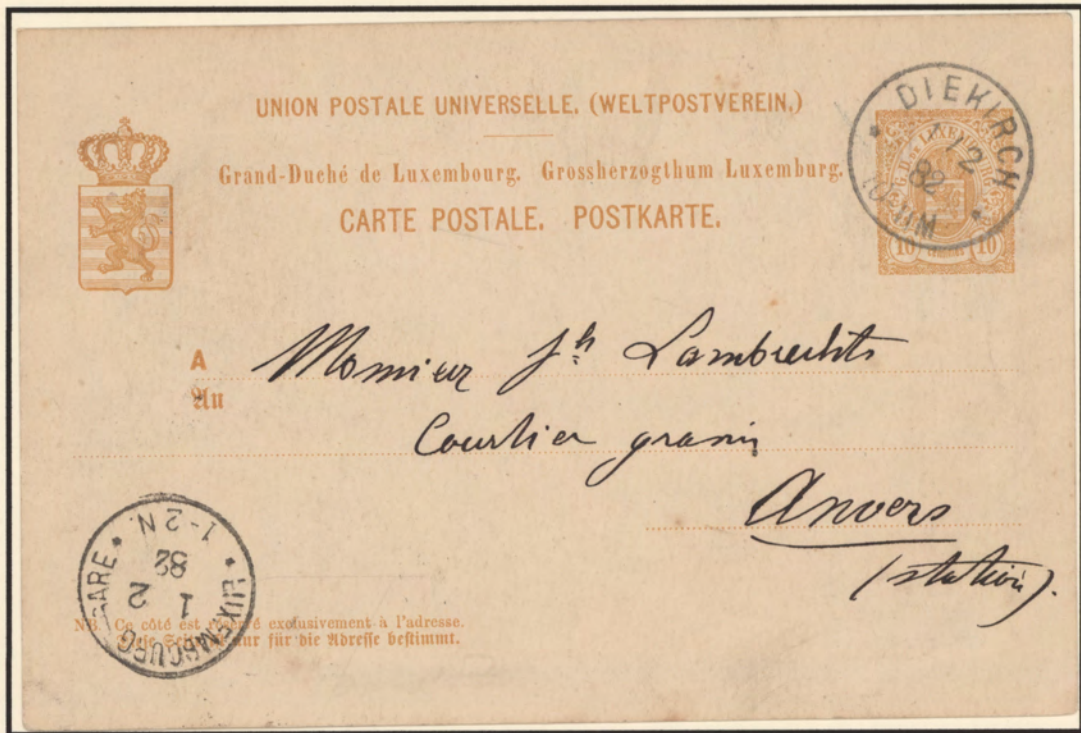 UNION POSTALE UNIVERSELLE. (WELTPOSTVEREIN.)
Grand-Duché de Luxembourg. Grossherzogthum Luxemburg.
CARTE POSTALE. POSTKARTE.
DIEKIRCH
1/2
82
10-11M
G. D. LUXEMBURG
10 CENTIMES 10
A Monsieur Jh Lambrechts
Au
Courtier grains
Anvers
(station).
LUXEMBOURG GARE
1 2
82
1-2N
NB. Ce côté est réservé exclusivement à l'adresse.
Diese Seite ist nur für die Adresse bestimmt.